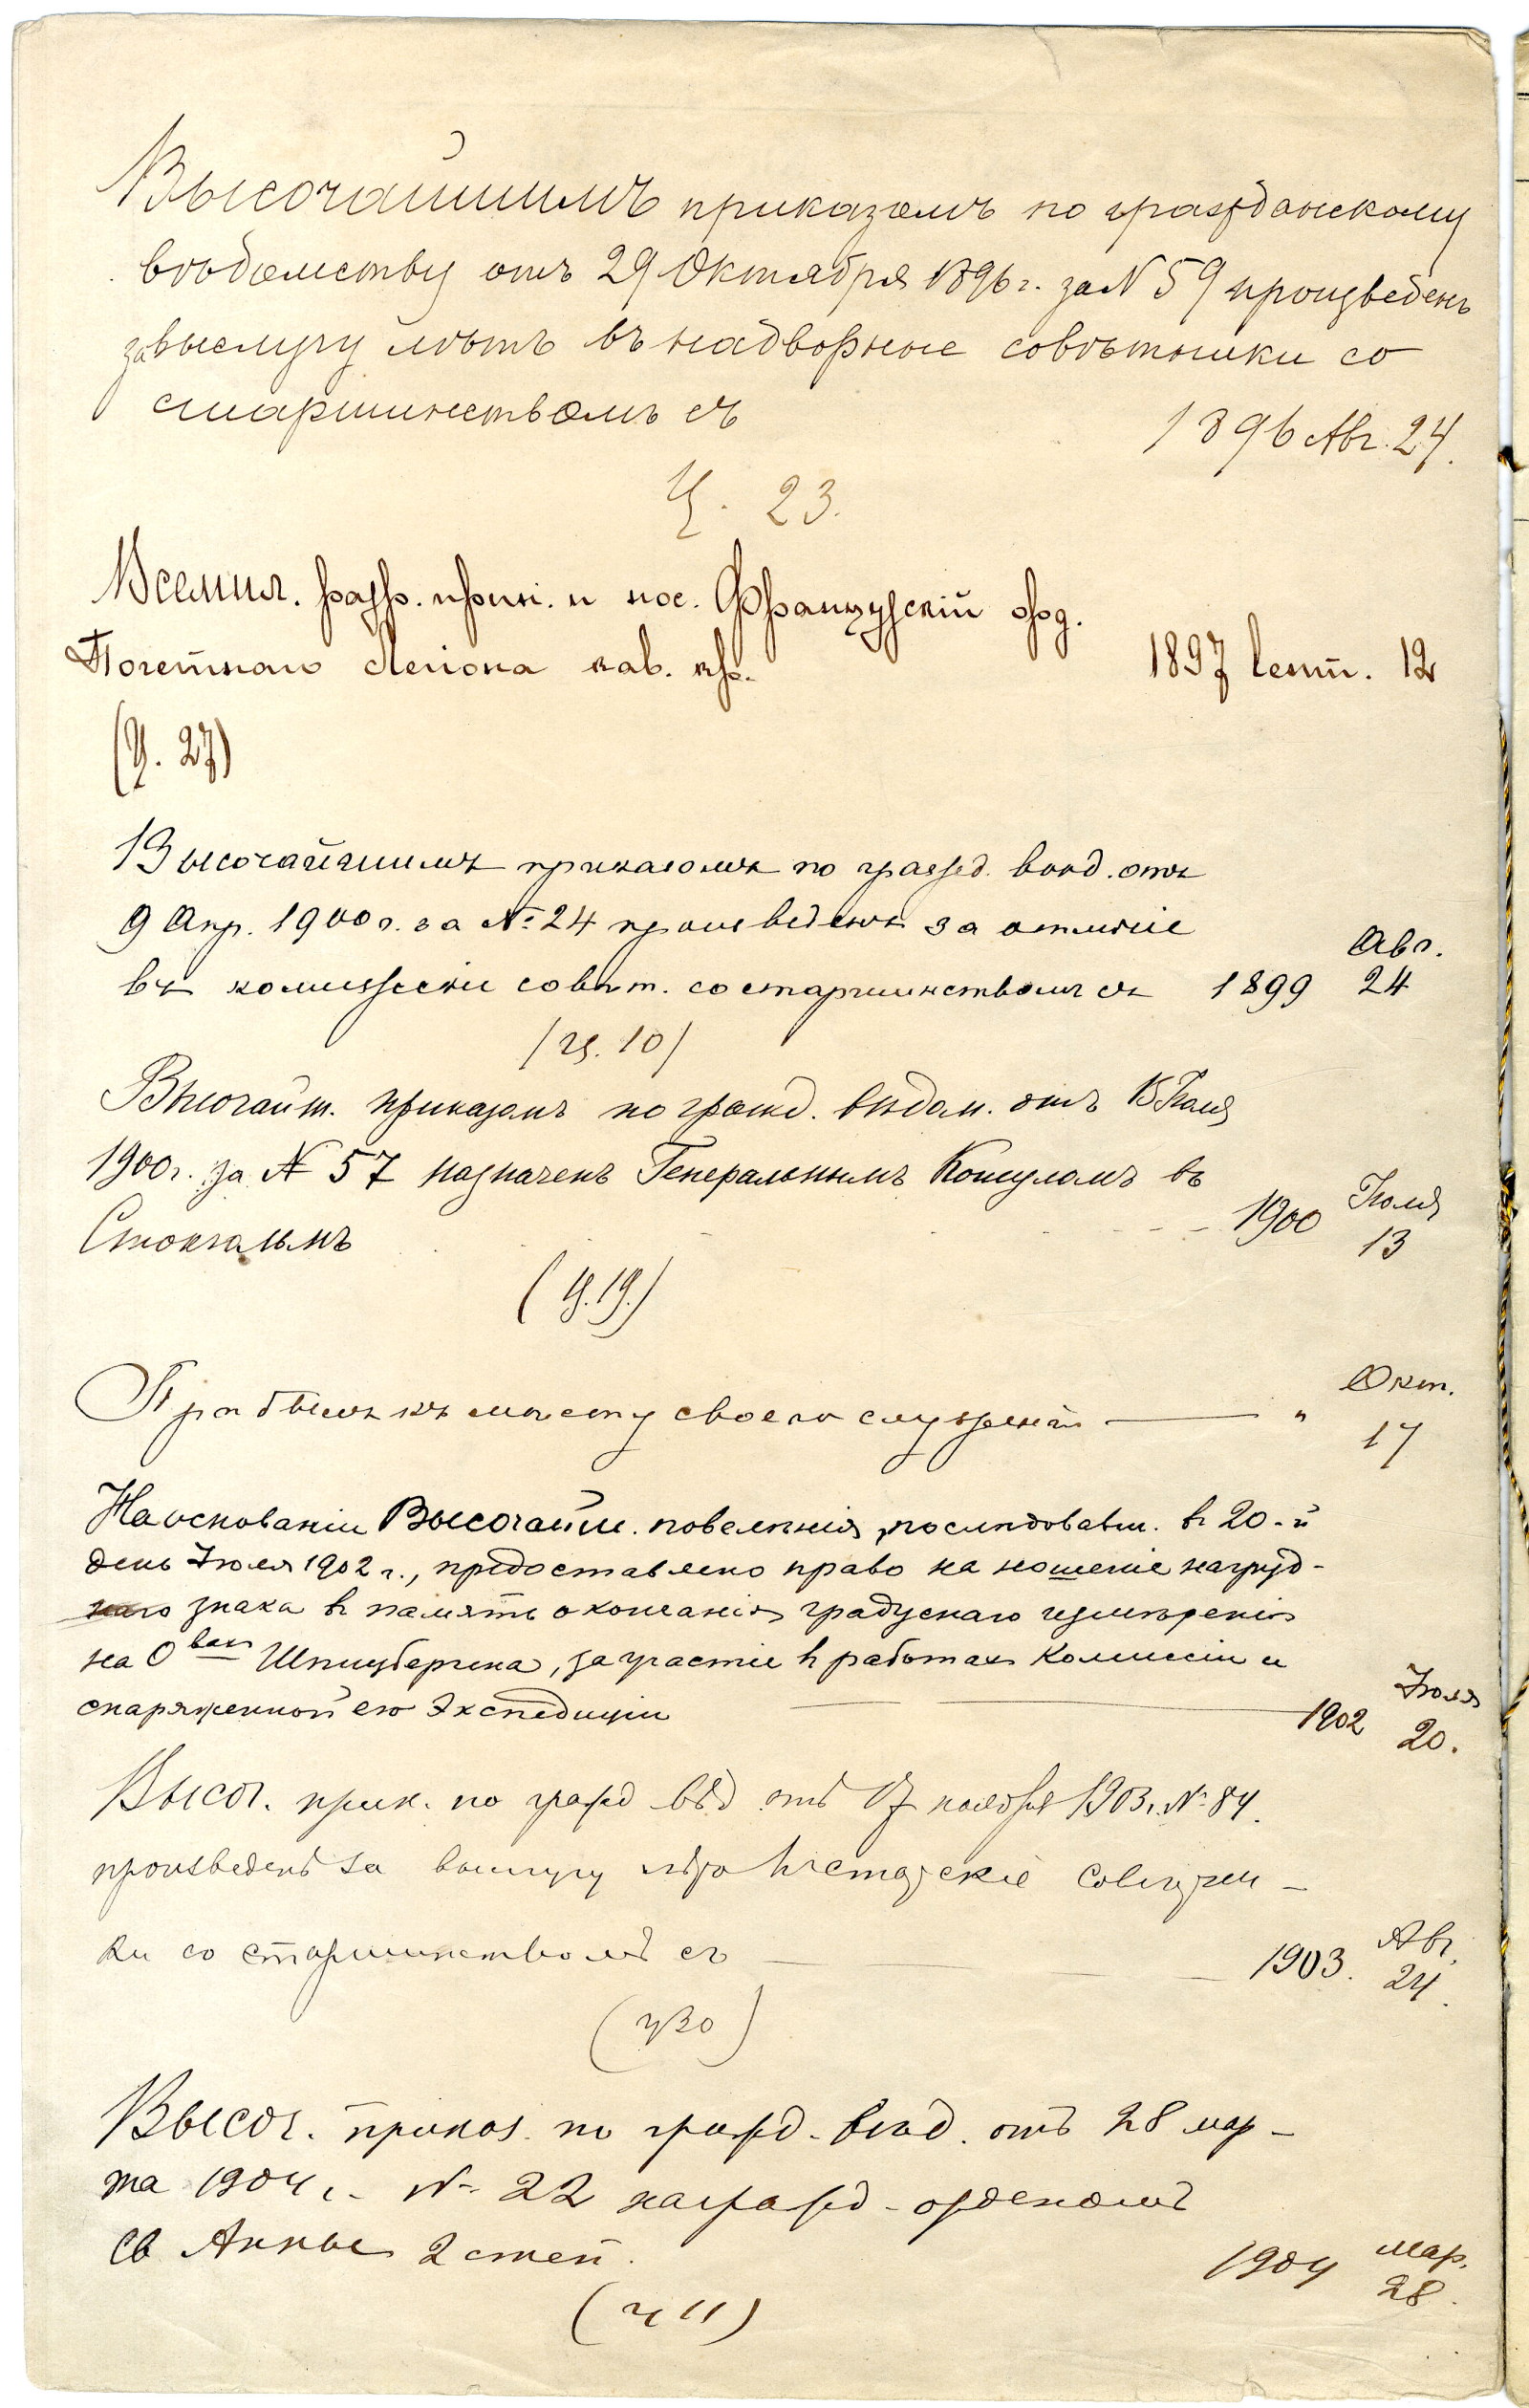 Высочайшимъ приказомъ по гражданскому
вѣдомству отъ 29 Октября 1896 г. за N 59 произведенъ
за выслугу лѣтъ въ надворные совѣтники со
старшинствомъ съ 1896 Авг. 24.
Ц. 23.
Всемил. разр. прин. и нос. Французскій орд.
Почетнаго Легіона кав. кр. 1897 Сент. 12
(Ц. 27)
Высочайшимъ приказомъ по гражд. вѣд. отъ
9 Апр. 1900 г. за № 24 произведенъ за отличіе Авг.
въ коллежскіе совѣт. со старшинствомъ съ 1899 24
/Ц. 10/
Высочайш. приказомъ по гражд. вѣдом. отъ 13 Іюля
1900 г. за № 57 назначенъ Генеральнымъ Консуломъ въ Іюля
Стокгольмъ 1900 13
(Ц. 19.)
Окт.
Прибылъ къ мѣсту своего служенія " 17
На основаніи Высочайш. повелѣнія, послѣдовавш. въ 20-й
день Іюля 1902 г., предоставлено право на ношеніе нагруд-
наго знака въ память окончанія градуснаго измѣренія
на О-вахъ Шпицбергена, за участіе въ работах Коммиссіи и Іюля
снаряженной ею Экспедиціи 1902 20.
Высоч. прик. по гражд вѣд отъ 17 ноября 1903 г. № 84.
произведенъ за выслугу лѣтъ въ статскіе совѣтни-
ки со старшинствомъ съ 1903. Авг. 24.
(ц 30)
Высоч. приказ. по гражд. вѣд. отъ 28 мар-
та 1904 г. № 22 награжд. орденомъ
Св Анны 2 степ. 1904 мар. 28.
(ц 11)